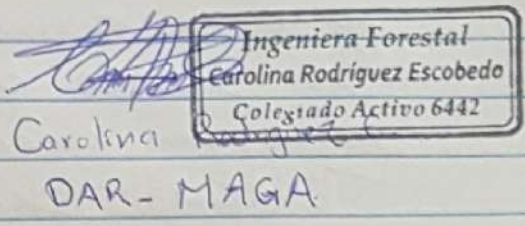 Ingeniera Forestal
Carolina Rodríguez Escobedo
Colegiado Activo 6442
Carolina Rodriguez
DAR- MAGA